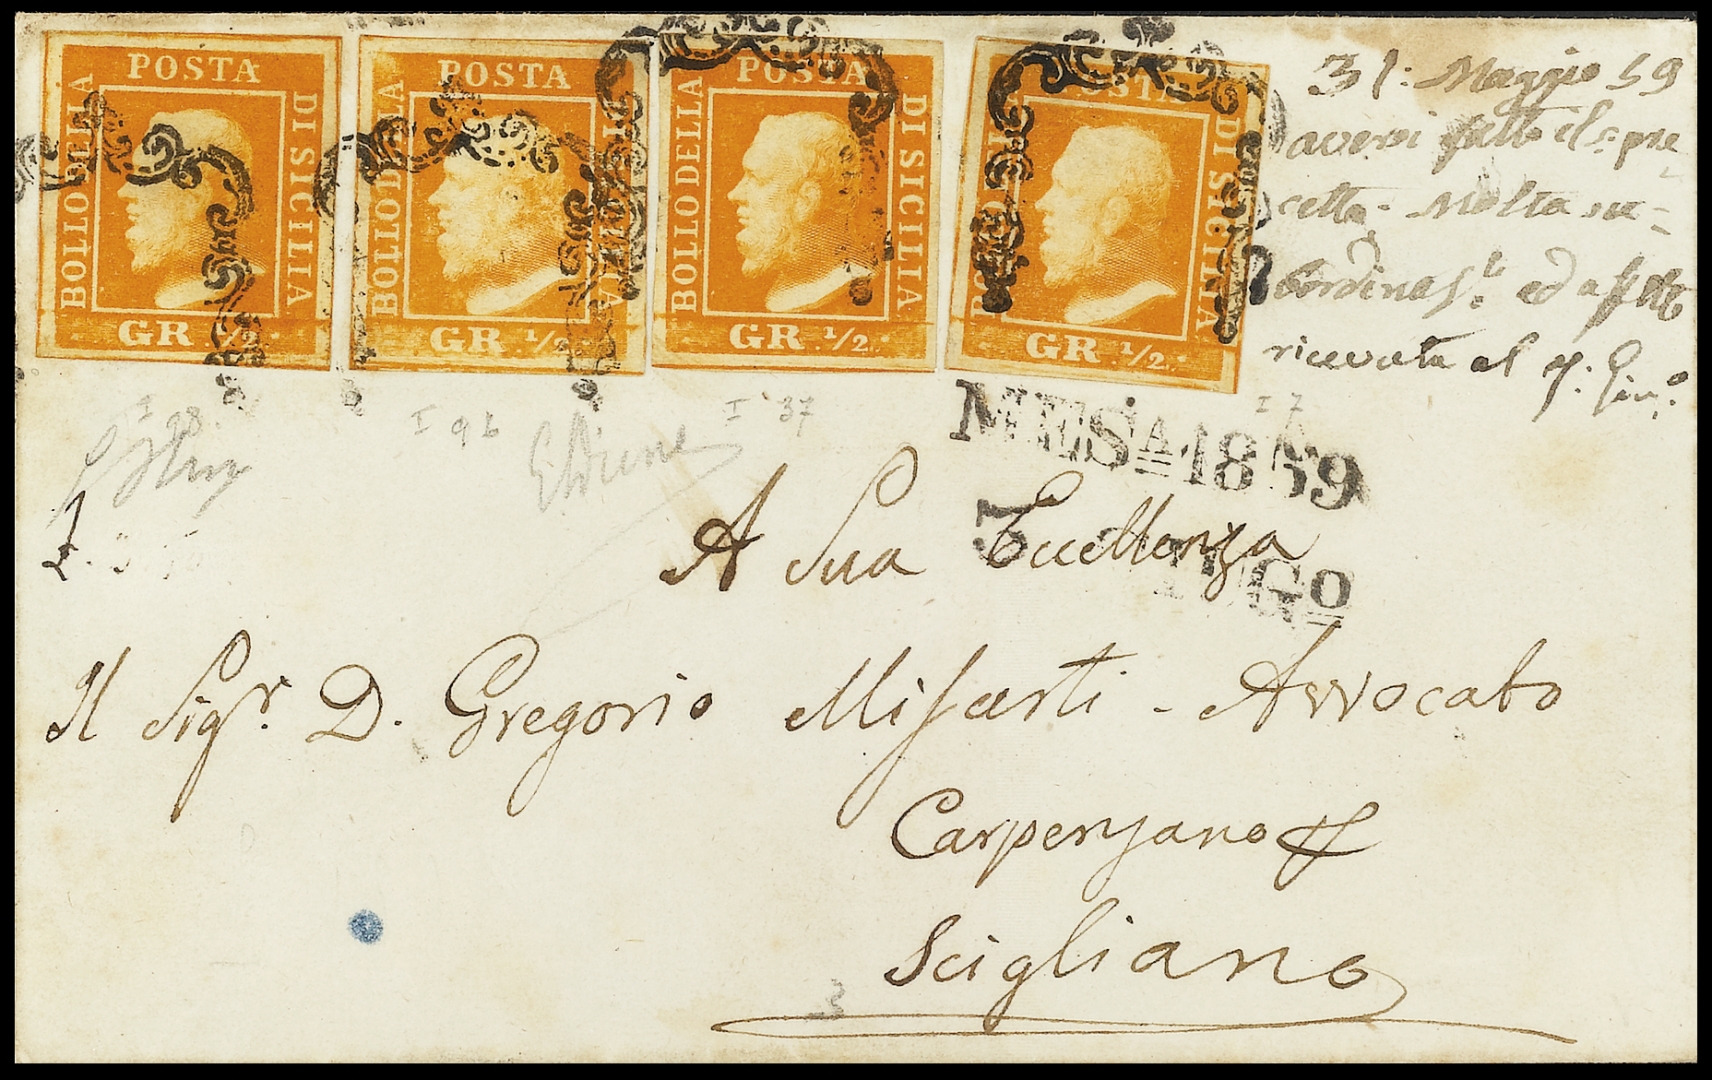 POSTA
BOLLO DELLA
DI SICILIA
GR. 1/2.
POSTA
BOLLO DELLA
DI SICILIA
GR. 1/2.
POSTA
BOLLO DELLA
DI SICILIA
GR. 1/2.
POSTA
BOLLO DELLA
DI SICILIA
GR. 1/2.
31: Maggio 59
ricevuta al 7: Giu.º
I 98.
I 96
I 37
I 7
E Diena
MESᴬ 1859
A Sua Eccellenza
Il Sigʳ. D. Gregorio Misasti - Avvocato
Carpenzano
Scigliano
3